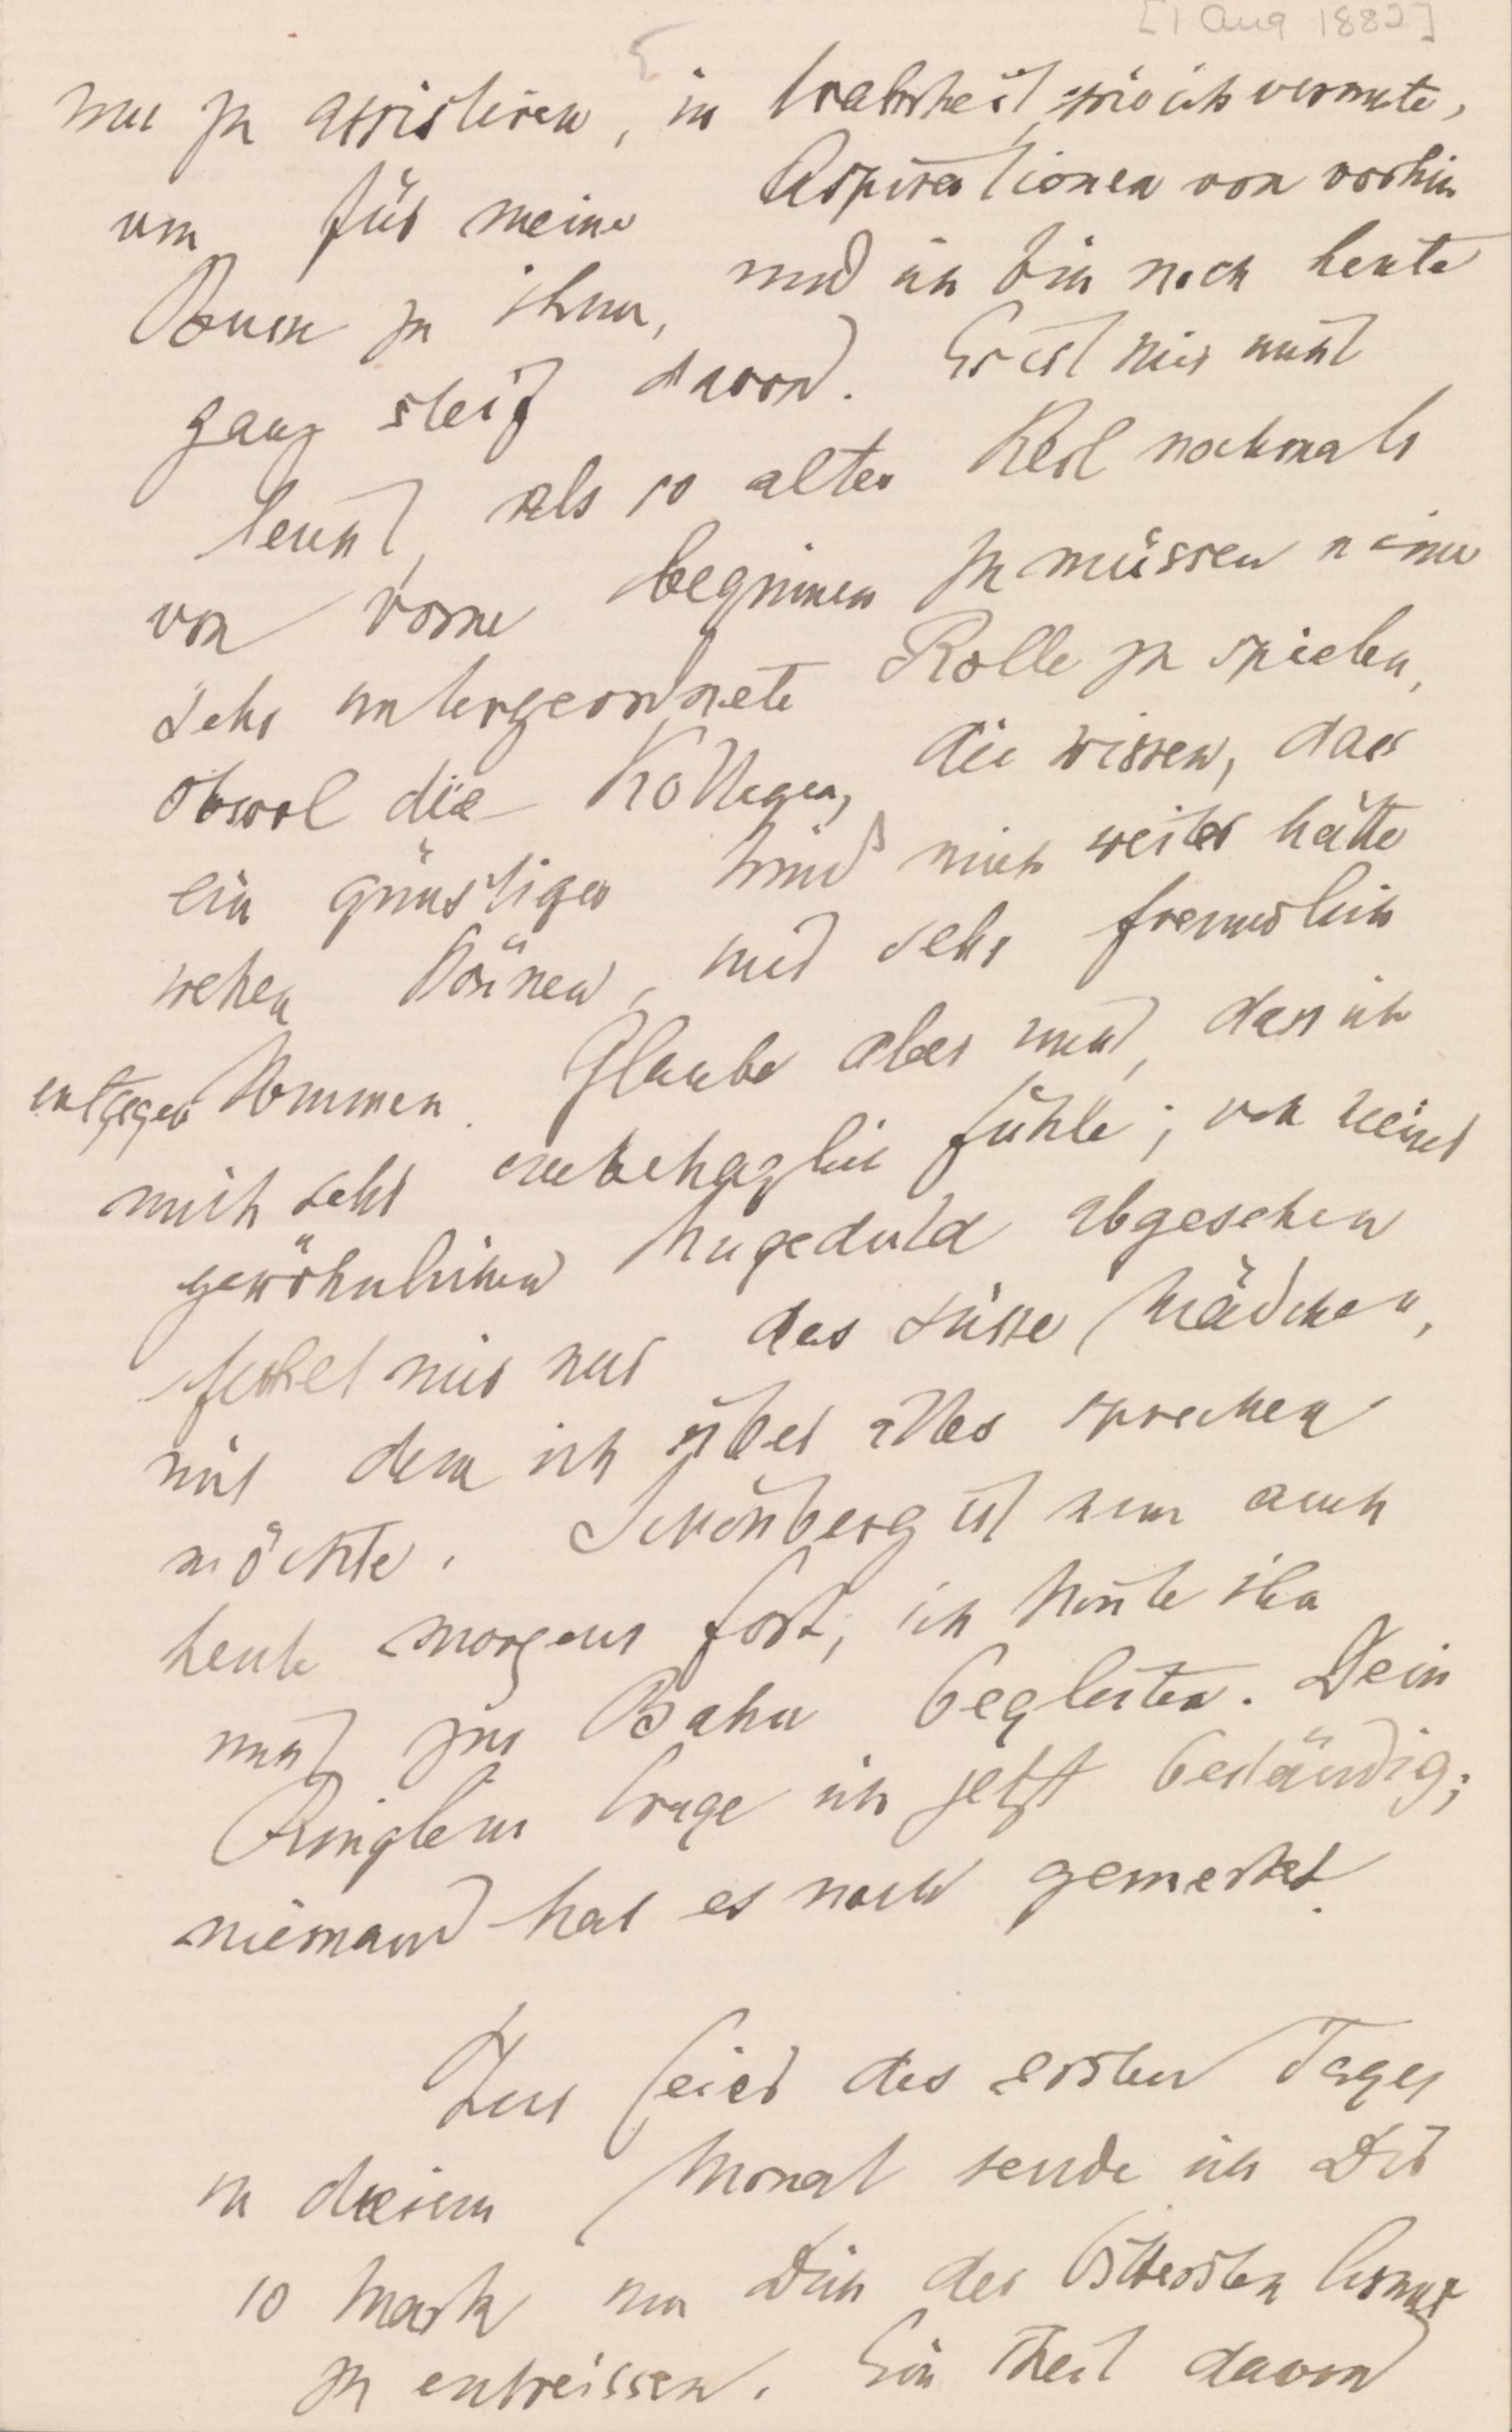 [1 Aug 1882]
nur zu assistiren, in Wahrheit, wie ich vermute,
um für meine Aspirationen von vorhin
Busse zu thun, und ich bin noch heute
ganz steif davon. Es ist mir nicht
leicht, als so alter Kerl nochmals
von vorne beginnen zu müssen u eine
sehr untergeordnete Rolle zu spielen,
obwol die Kollegen, die wissen, dass
ein günstiger Wind mich weiter hätte
wehen können, mir sehr freundlich
entgegen kommen. Glaube aber nicht, dass ich
mich sehr unbehaglich fühle; von meiner
gewöhnlichen Ungeduld abgesehen
fehlet mir nur das süsse Mädchen,
mit dem ich über alles sprechen
möchte. Schönberg ist nun auch
heute morgens fort; ich konnte ihn
nicht zur Bahn begleiten. Dein
Ringlein trage ich jetzt beständig;
niemand hat es noch gemerkt.
Zur Feier des ersten Tages
in diesem Monat sende ich Dir
10 Mark um Dich der bittersten Armut
zu entreissen. Ein Theil davon